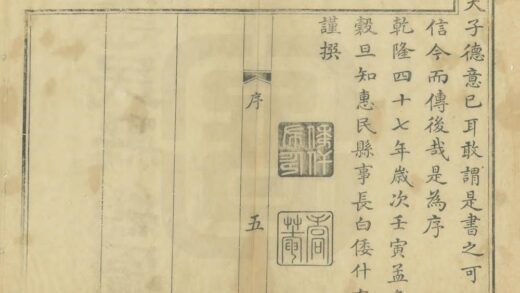 天子德意已耳敢謂是書之可
信今而傳後哉是為序
乾隆四十七年歲次壬寅孟
穀旦知惠民縣事長白倭什
謹撰
序
五